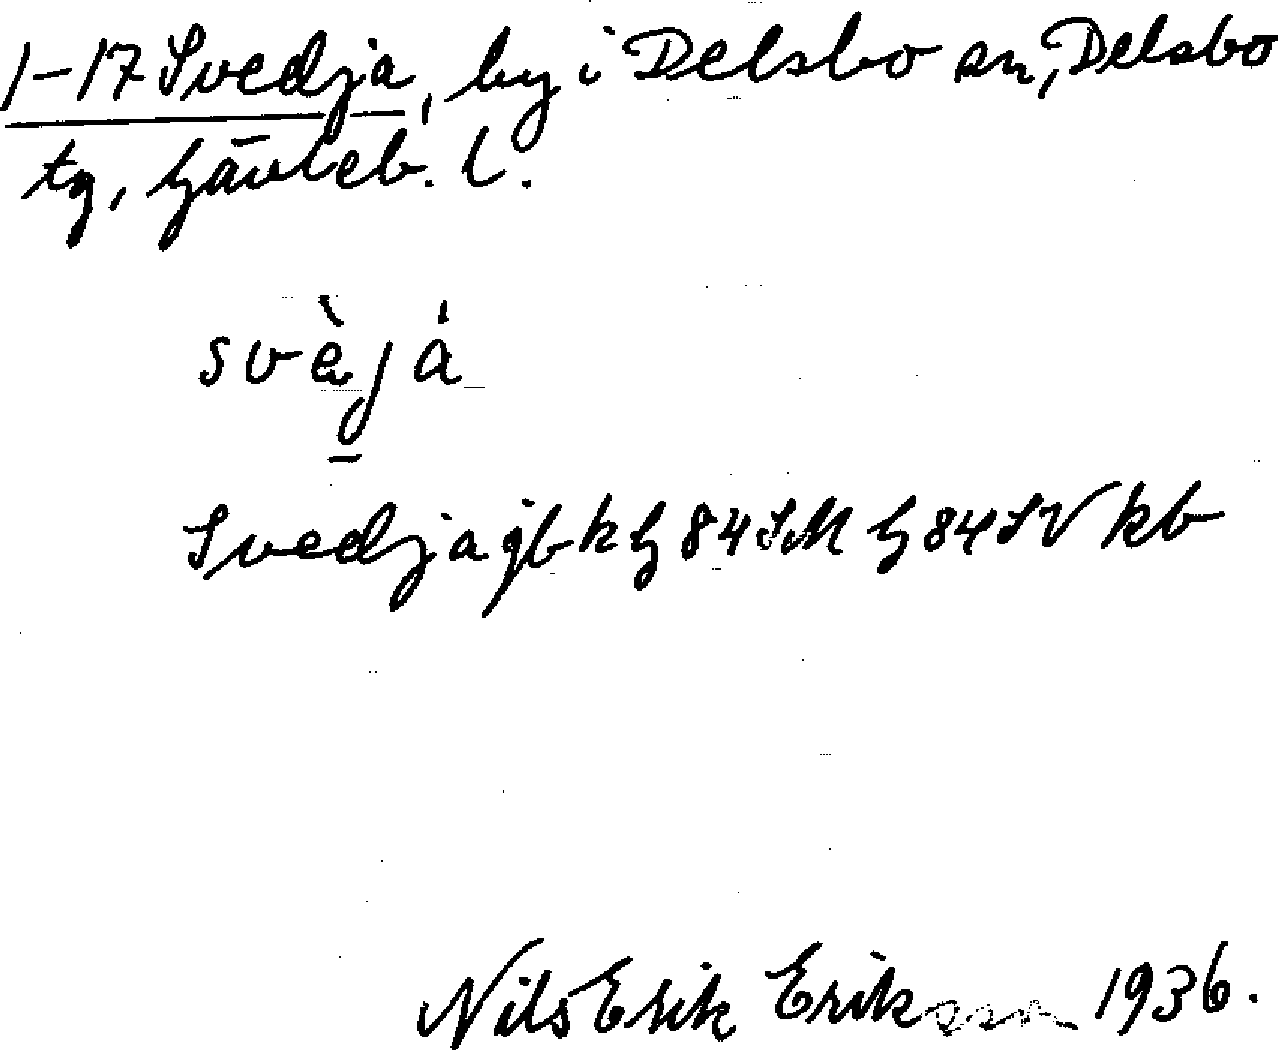 1–17 Svedja, by i Delsbo sn, Delsbo
tg, Gävleb. l.
svèjá
Svedja jb k G 84 SM G 84 SV kb
Nils Erik Eriksson 1936.